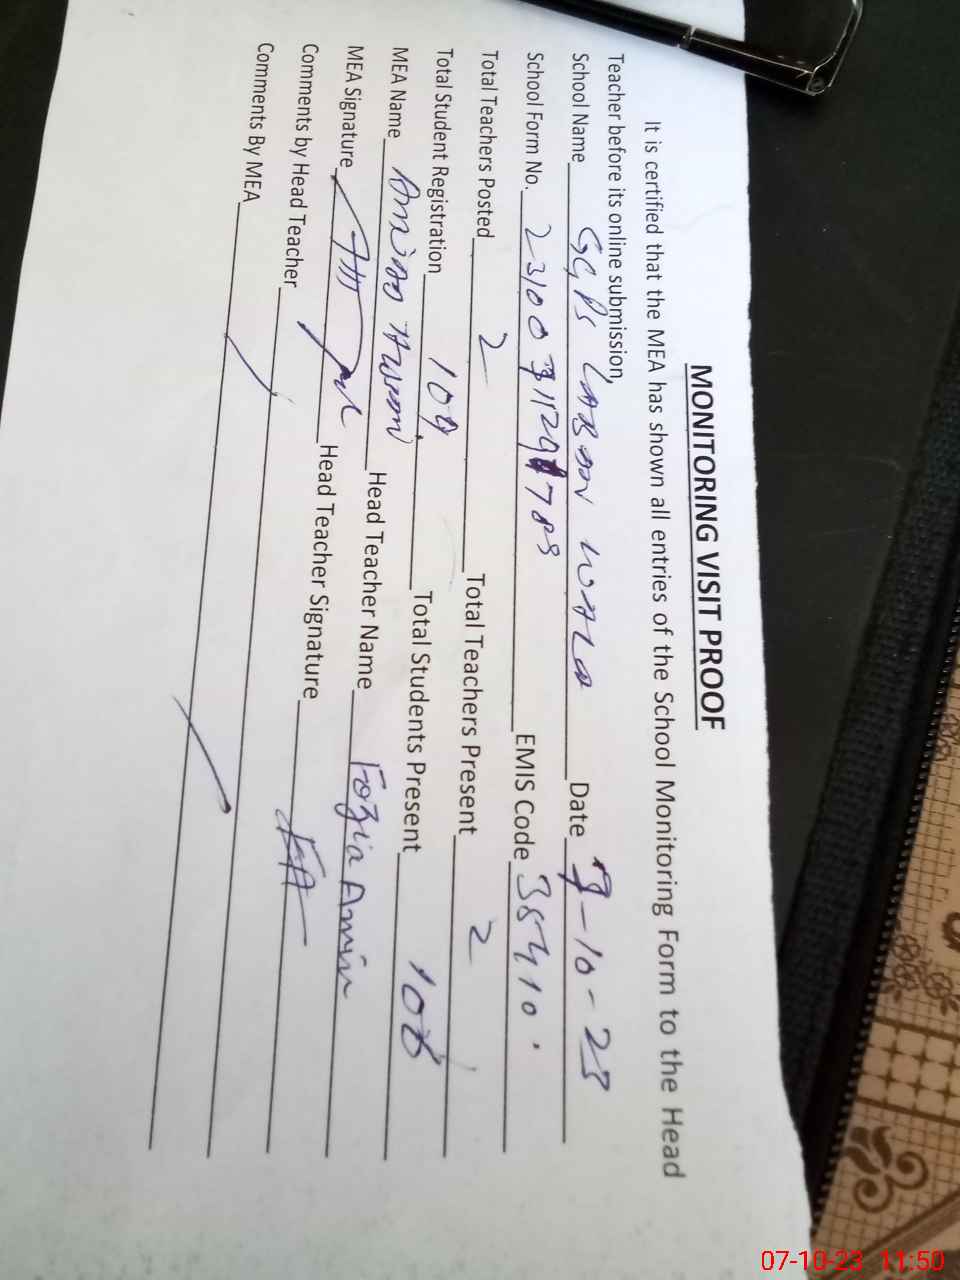 MONITORING VISIT PROOF
It is certified that the MEA has shown all entries of the School Monitoring Form to the Head
Teacher before its online submission.
School Name GGPS LABAN WALA Date 7-10-23
School Form No. EMIS Code 38410
Total Teachers Posted 2 Total Teachers Present 2
Total Student Registration 109 Total Students Present
MEA Name Head Teacher Name Fozia Amin
MEA Signature Head Teacher Signature
Comments by Head Teacher
Comments By MEA
07-10-23 11:50